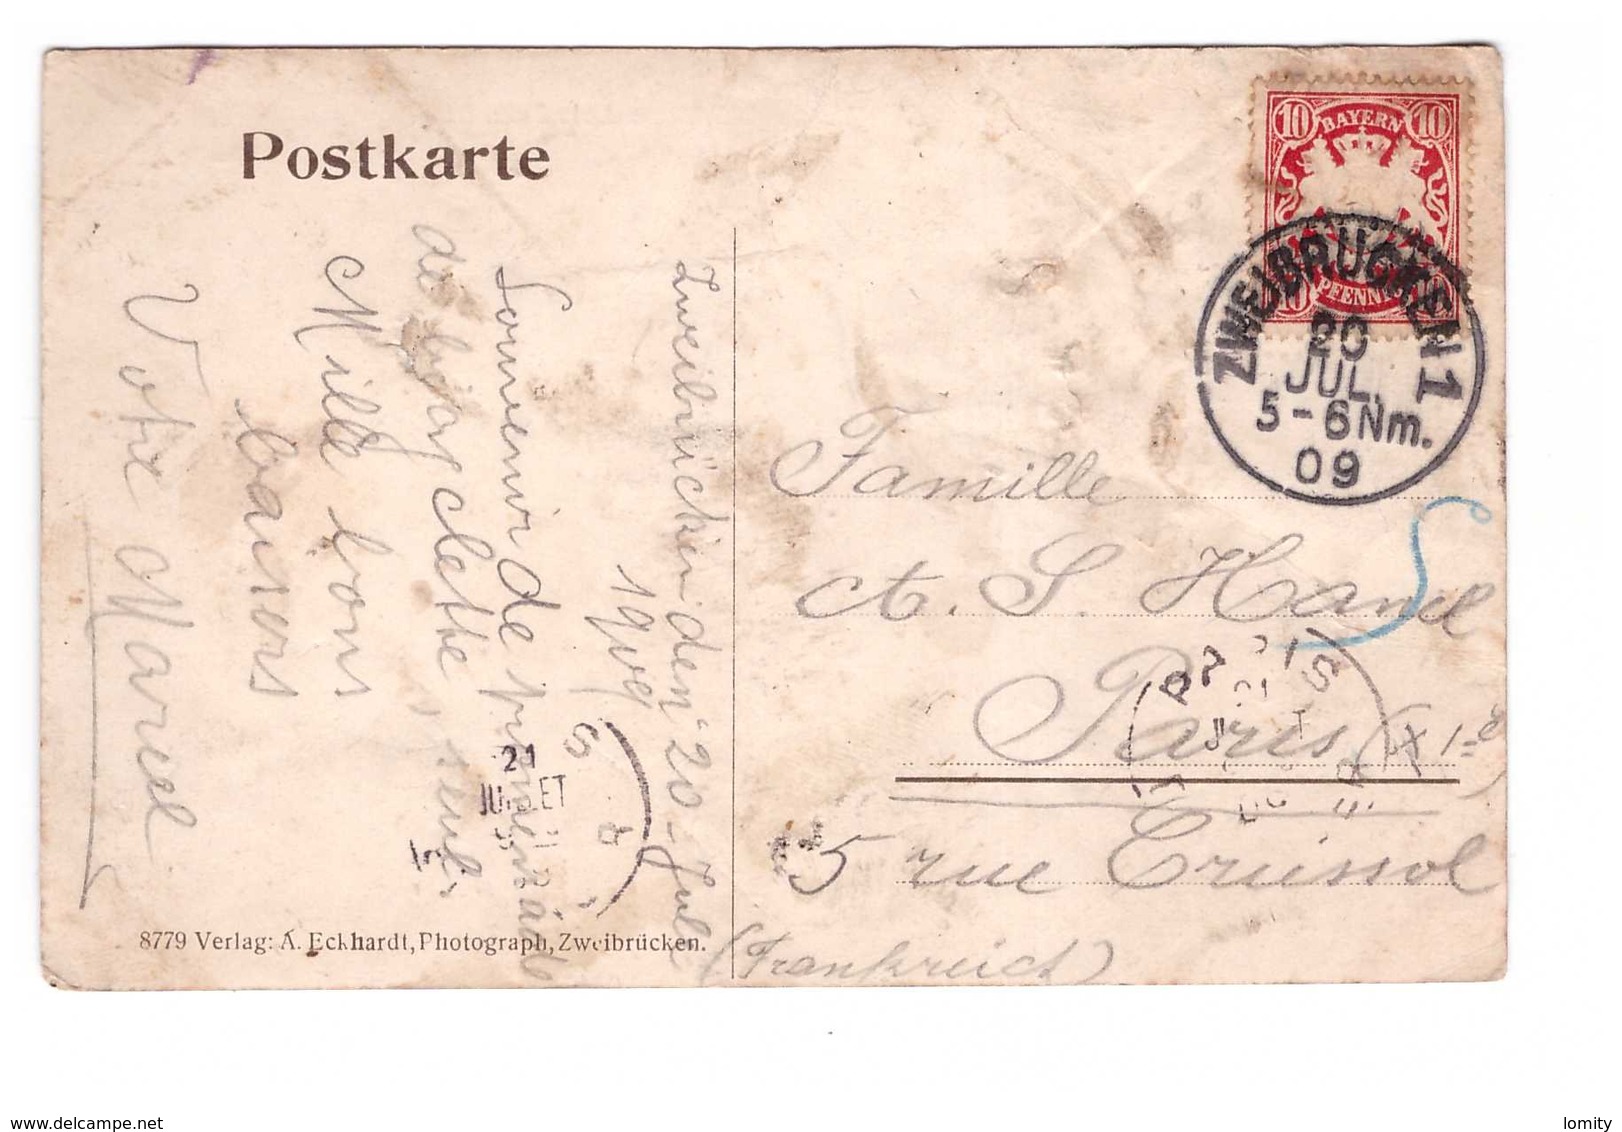 Postkarte
10 BAYERN 10
10 PFENNIG 10
ZWEIBRÜCKEN 1
20
JUL.
5-6Nm.
09
Zweibrücken den 20 Juli
1909
Souvenir de promenade
de bicyclette, seul.
Mille bons
baisers
Votre Marcel
Famille
A. S. Hanel
Paris (XIe)
5 rue Crussol
(Frankreich)
21
JUILLET
8779 Verlag: A. Eckhardt, Photograph, Zweibrücken.
www.delcampe.net
lomity